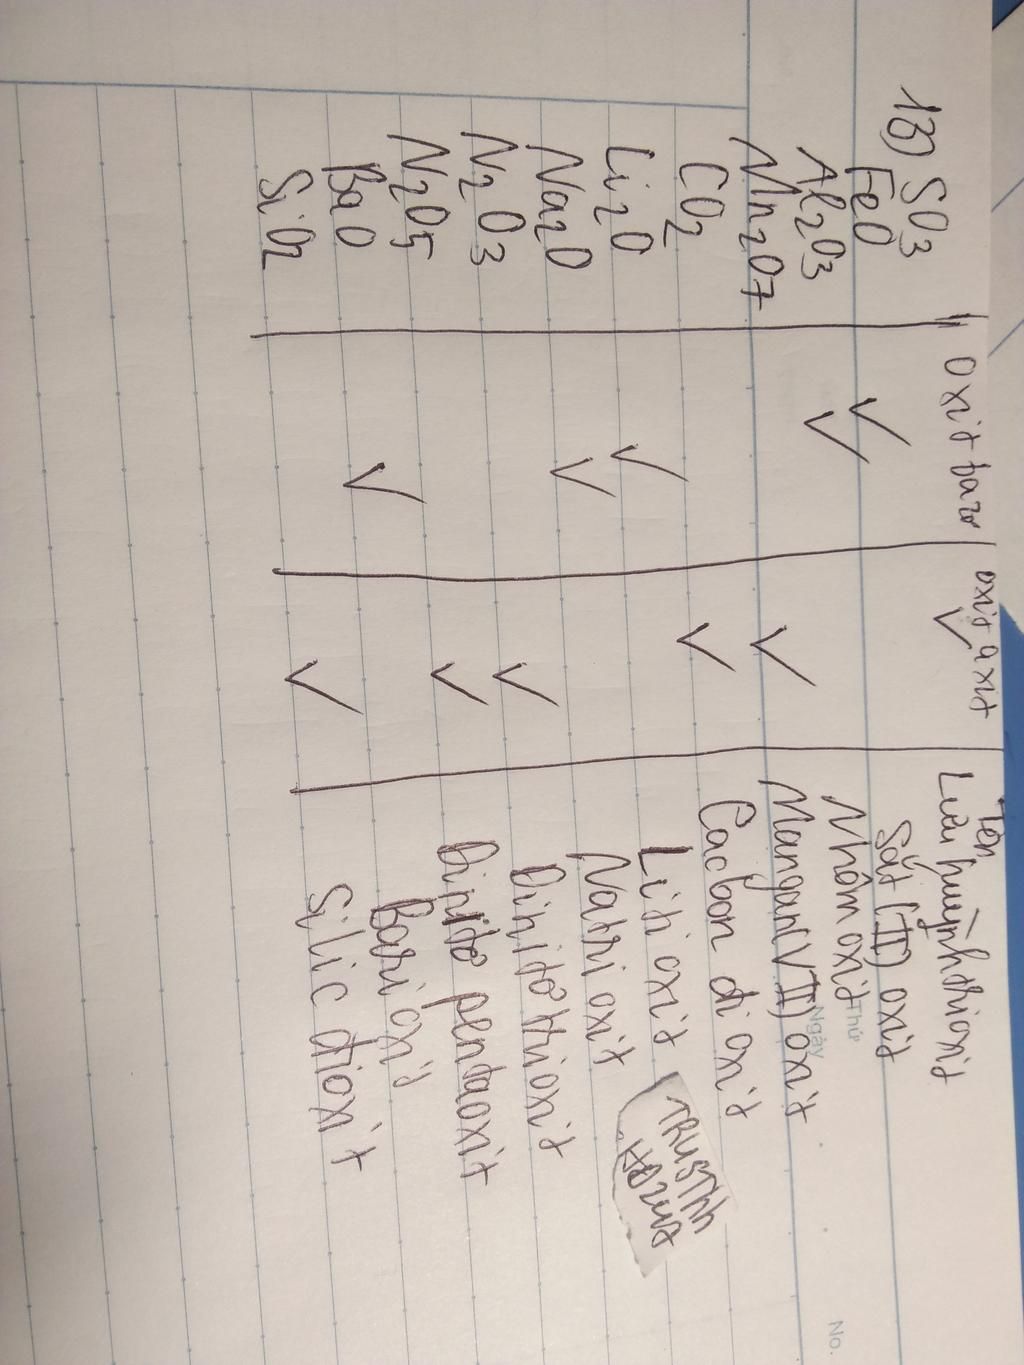 oxit bazơ oxit axit Tên
13) SO3 ✓ Lưu huỳnh trioxit
FeO ✓ Sắt (II) oxit
Al2O3 ✓ Nhôm oxit
Mn2O7 ✓ Mangan (VII) oxit
CO2 ✓ Cacbon đioxit
Li2O ✓ Liti oxit
Na2O ✓ Natri oxit
N2O3 ✓ Đinitơ trioxit
N2O5 ✓ Đinitơ pentaoxit
BaO ✓ Bari oxit
SiO2 ✓ Silic đioxit
Thứ
Ngày
No.